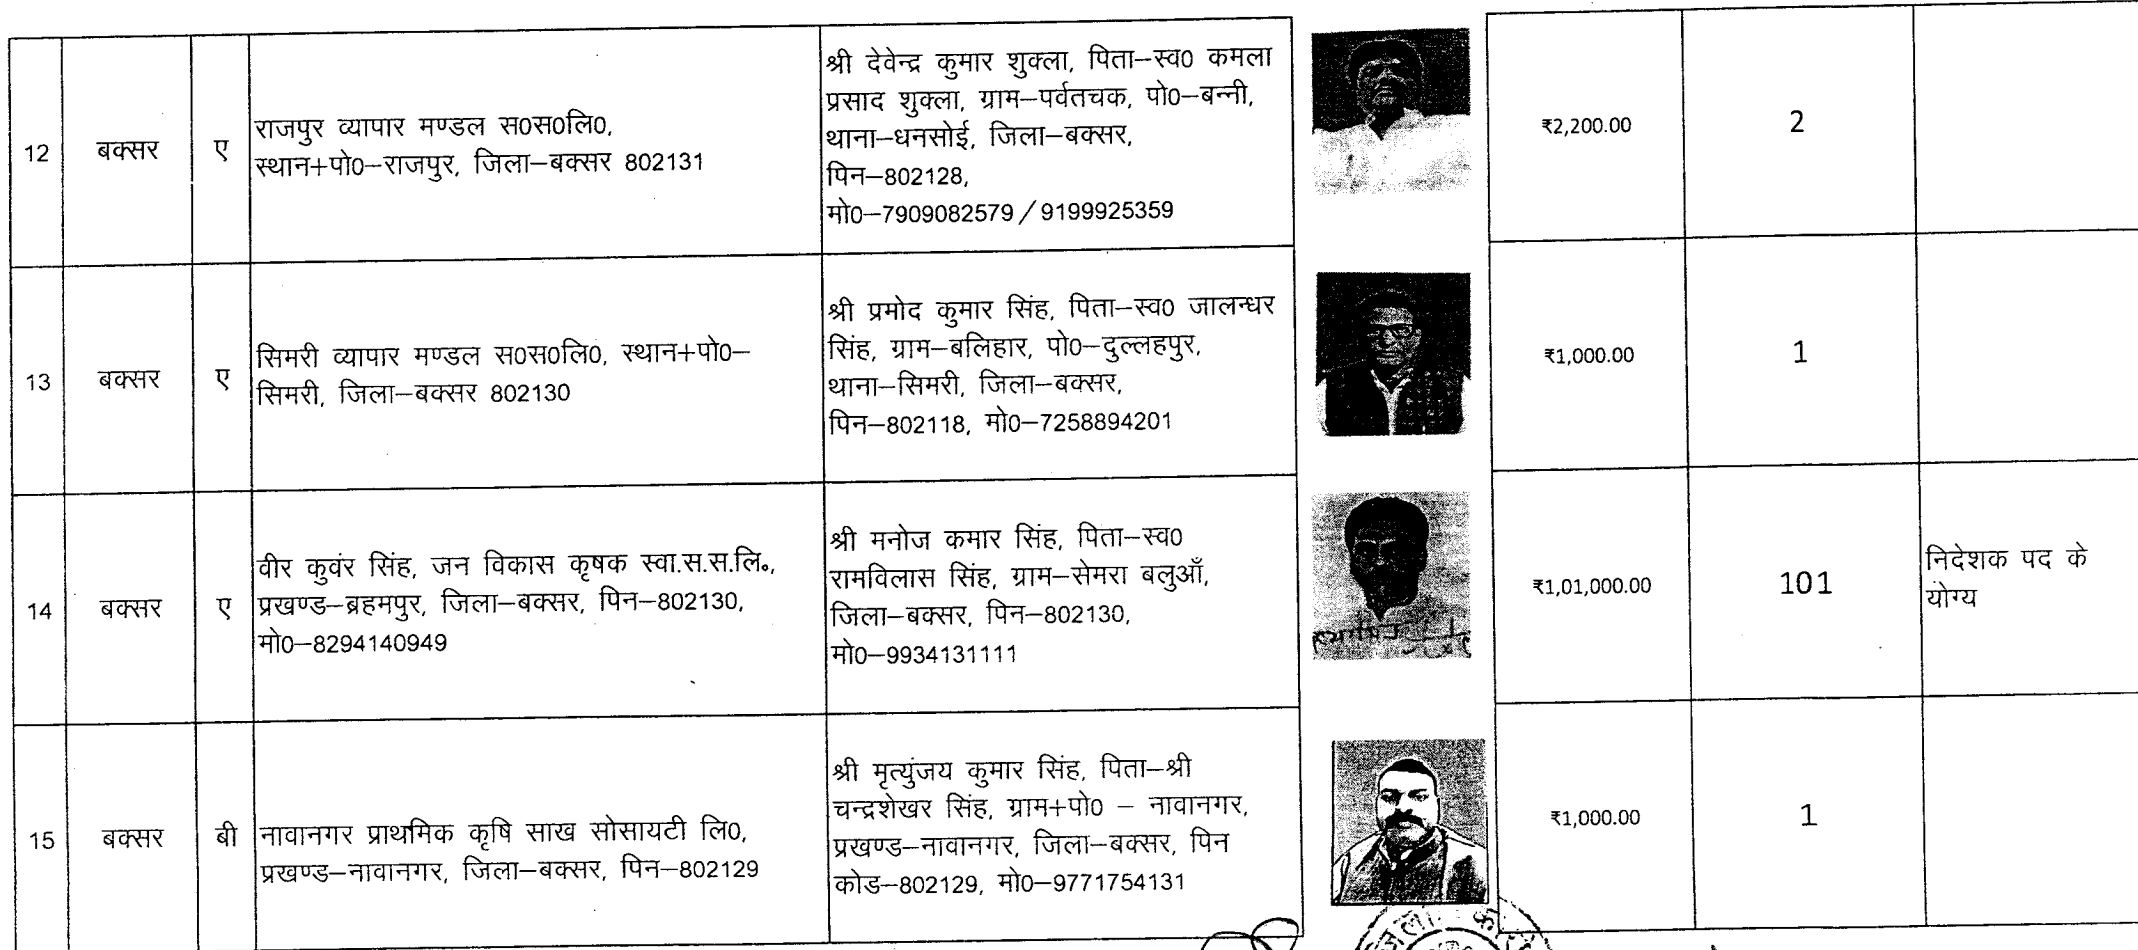 12
बक्सर
ए
राजपुर व्यापार मण्डल स0स0लि0,
स्थान+पो0–राजपुर, जिला–बक्सर 802131
श्री देवेन्द्र कुमार शुक्ला, पिता–स्व0 कमला
प्रसाद शुक्ला, ग्राम–पर्वतचक, पो0–बन्नी,
थाना–धनसोई, जिला–बक्सर,
पिन–802128,
मो0–7909082579/9199925359
₹2,200.00
2
13
बक्सर
ए
सिमरी व्यापार मण्डल स0स0लि0, स्थान+पो0–
सिमरी, जिला–बक्सर 802130
श्री प्रमोद कुमार सिंह, पिता–स्व0 जालन्धर
सिंह, ग्राम–बलिहार, पो0–दुल्लहपुर,
थाना–सिमरी, जिला–बक्सर,
पिन–802118, मो0–7258894201
₹1,000.00
1
14
बक्सर
ए
वीर कुवंर सिंह, जन विकास कृषक स्वा.स.स.लि॰,
प्रखण्ड–ब्रहमपुर, जिला–बक्सर, पिन–802130,
मो0–8294140949
श्री मनोज कमार सिंह, पिता–स्व0
रामविलास सिंह, ग्राम–सेमरा बलुआँ,
जिला–बक्सर, पिन–802130,
मो0–9934131111
₹1,01,000.00
101
निदेशक पद के
योग्य
15
बक्सर
बी
नावानगर प्राथमिक कृषि साख सोसायटी लि0,
प्रखण्ड–नावानगर, जिला–बक्सर, पिन–802129
श्री मृत्युंजय कुमार सिंह, पिता–श्री
चन्द्रशेखर सिंह, ग्राम+पो0 – नावानगर,
प्रखण्ड–नावानगर, जिला–बक्सर, पिन
कोड–802129, मो0–9771754131
₹1,000.00
1